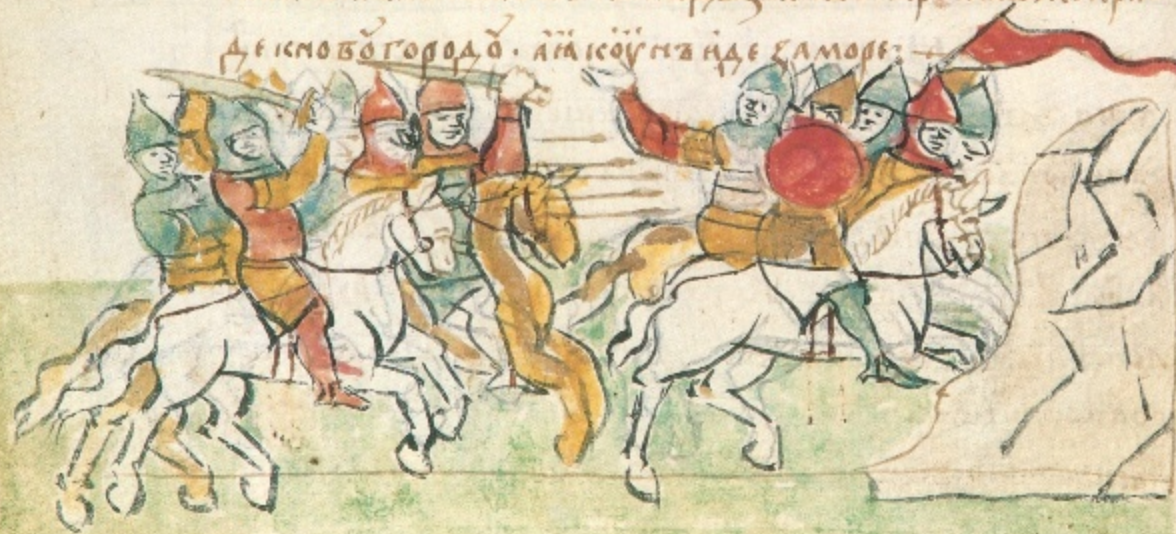 де к новоу городоу · а ꙗкоунъ иде за море